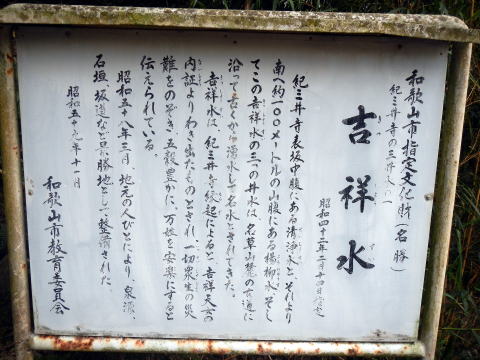 和歌山市指定文化財(名勝)
紀三井寺の三井水の一
吉祥水
きっしょうすい
昭和四十二年二月十四日指定
紀三井寺表坂中腹にある清浄水と、それより
南へ約一〇〇メートルの山腹にある楊柳水、そし
てこの吉祥水の三つの井水は、名草山麓の古道に
沿って古くから湧水として名水とされてきた。
吉祥水は、紀三井寺縁起によると、吉祥天女の
内証よりわき出たものとされ、一切衆生の災
難をのぞき、五穀豊かに、万姓を安楽にすると
伝えられている
昭和五十八年三月、地元の人びとにより、泉源、
石垣、坂道など景勝地として、整備された。
昭和五十九年十一月
和歌山市教育委員会